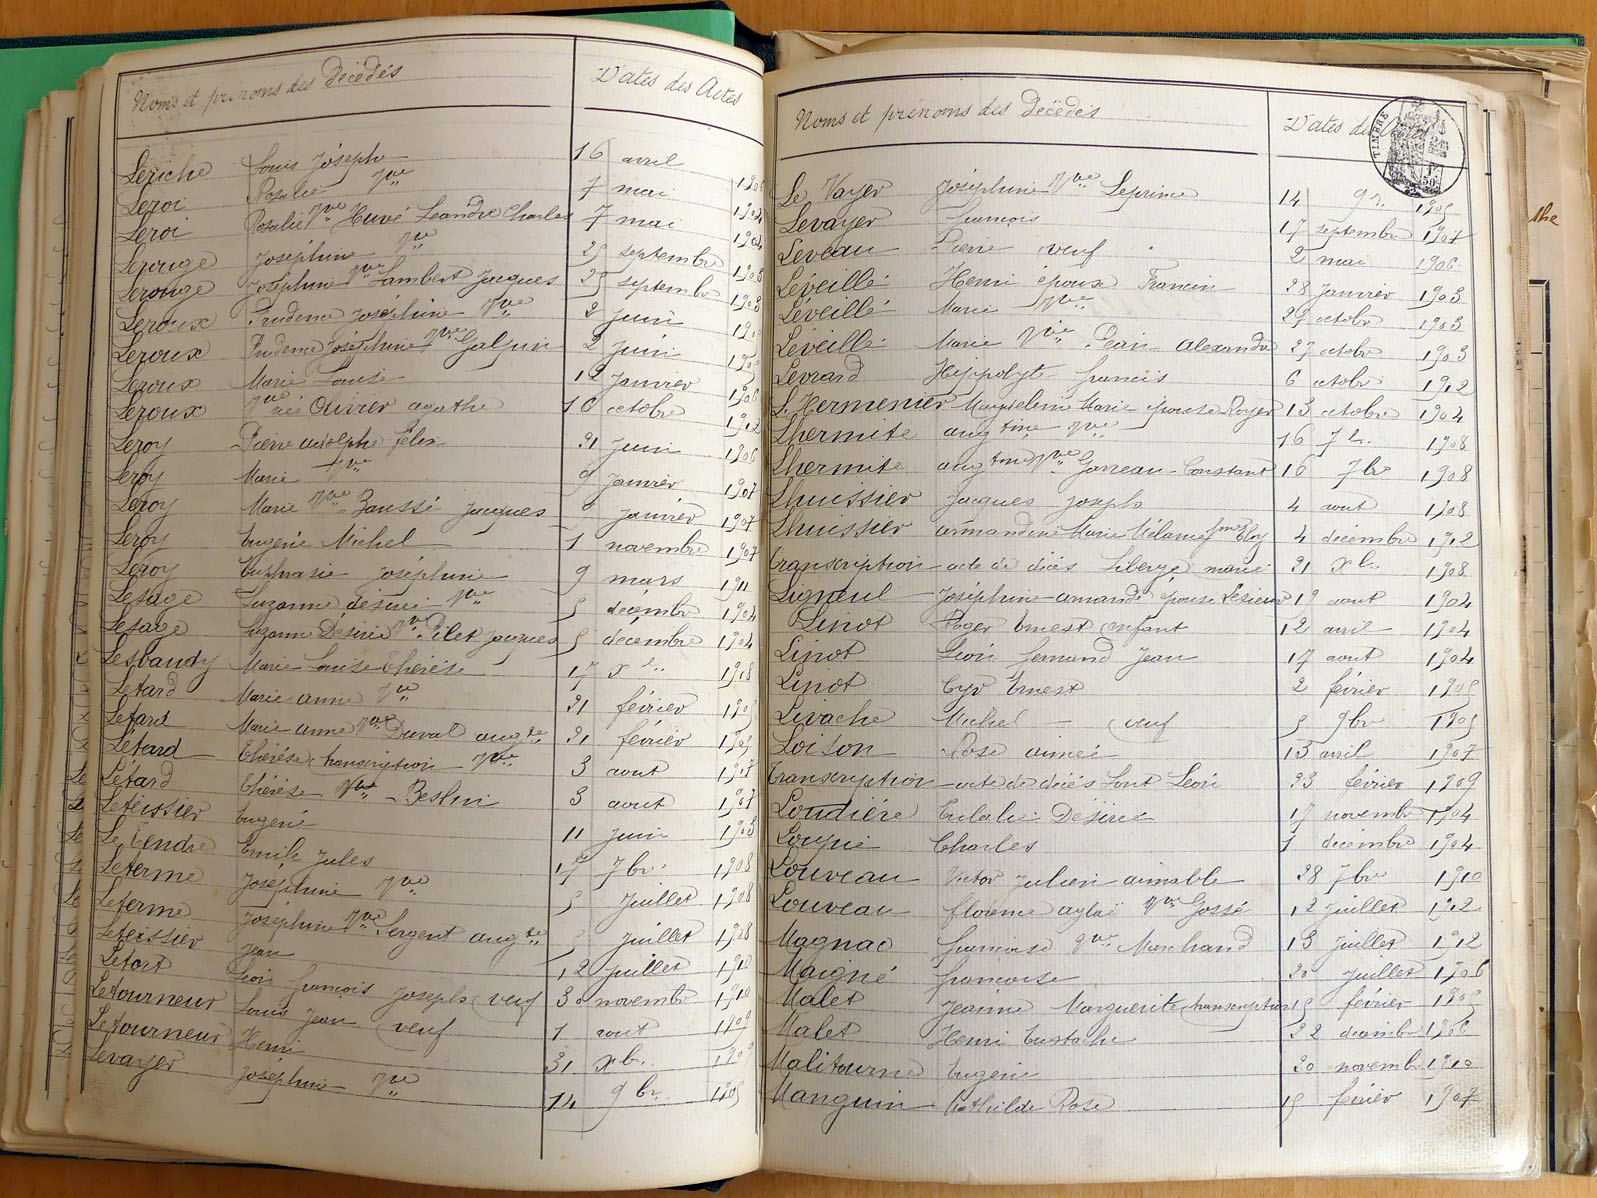 Noms et prénoms des Décédés Dates des Actes
Leriche Louis Joseph 16 avril
Leroi Rosalie Vve 7 mai 1904
Leroi Rosalie Vve Huvé Leandre Charles 7 mai 1904
Lerouge Joséphine Vve 25 septembre 1903
Lerouge Joséphine Vve Lambert Jacques 25 septembre 1903
Leroux Prudence Joséphine Vve 2 juin
Leroux Prudence Joséphine Vve Galpin 2 juin
Leroux Marie Louise 12 Janvier 1906
Leroux Vve née Olivier agathe 16 octobre 1912
Leroy Pierre adolphe félix 21 juin 1906
Leroy Marie Vve 9 Janvier 1907
Leroy Marie Vve Jacques Janvier 1907
Leroy Eugénie Michel 1 novembre 1907
Leroy Euphrasie Joséphine 9 mars 1911
Lesage Suzanne désirée Vve 5 décembre 1904
Lesage Suzanne Désirée Vve Pilet Jacques 5 décembre 1904
Lesbaudy Marie Louise Thérèse 17 Xbre 1908
Letard Marie anne Vve 21 février 1905
Letard Marie anne Vve Duval augte 21 février 1905
Létard Thérèse transcription Vve 3 aout 1907
Létard Thérèse Vve Beslin 3 aout 1907
Letessier Eugène 11 juin 1903
Le Tendre Emile Jules 17 7bre 1908
Leterme Joséphine Vve 5 Juillet 1908
Leterme Joséphine Vve Sergent augte 5 Juillet 1908
Letessier Jean 12 Juillet 1910
Letort Léon françois Joseph veuf 30 novembre 1910
Letourneur Louis Jean veuf 1 aout 1909
Letourneur Henri 31 Xbre
Levayer Joséphine Vve 14 9bre 1905
Noms et prénoms des Décédés Dates des Actes
TIMBRE
Le Vayer Joséphine Vve Leprince 14 9bre 1905
Levayer françois 17 septembre 1907
Leveau Pierre veuf 2 mai 1906
Léveillé Henri époux 28 Janvier 1903
Léveillé Marie Vve 27 octobre 1903
Léveillé Marie Vve Jean alexandre 27 octobre 1903
Levrard Hippolyte francis 6 octobre 1912
L'Hermenier Magdeleine Marie épouse Royer 13 octobre 1904
Lhermite augtine Vve 16 7bre 1908
Lhermite augtine Vve Garreau Constant 16 7bre 1908
Lhuissier Jacques Joseph 4 aout 1908
Lhuissier armandine Marie Mélanie fme Eloy 4 décembre 1912
Transcription acte de décès Liberge marie 21 Xbre 1908
Ligneul Joséphine amanda épouse Lesieur 19 aout 1904
Linot Roger Ernest enfant 12 avril 1904
Linot Léon fernand Jean 17 aout 1904
Linot Cyr Ernest 2 février 1905
Livache Michel veuf 5 9bre 1905
Loison Rose aimée 13 avril 1907
Transcription acte de décès Lont Léon 23 février 1909
Loudière Eulalie Désirée 17 novembre 1904
Loupie Charles 1 décembre 1904
Louveau Victor Julien aimable 28 7bre 1910
Louveau florence aglaé Vve Gossé 12 Juillet 1912
Magnac françoise Vve Marchand 13 Juillet 1912
Maigné françoise 20 Juillet 1906
Malet Jeanne Marguerite transcription 15 février 1905
Malet Henri Eustache 22 décembre 1906
Malitourne Eugène 20 novembre 1910
Manguin Mathilde Rose 15 février 1907